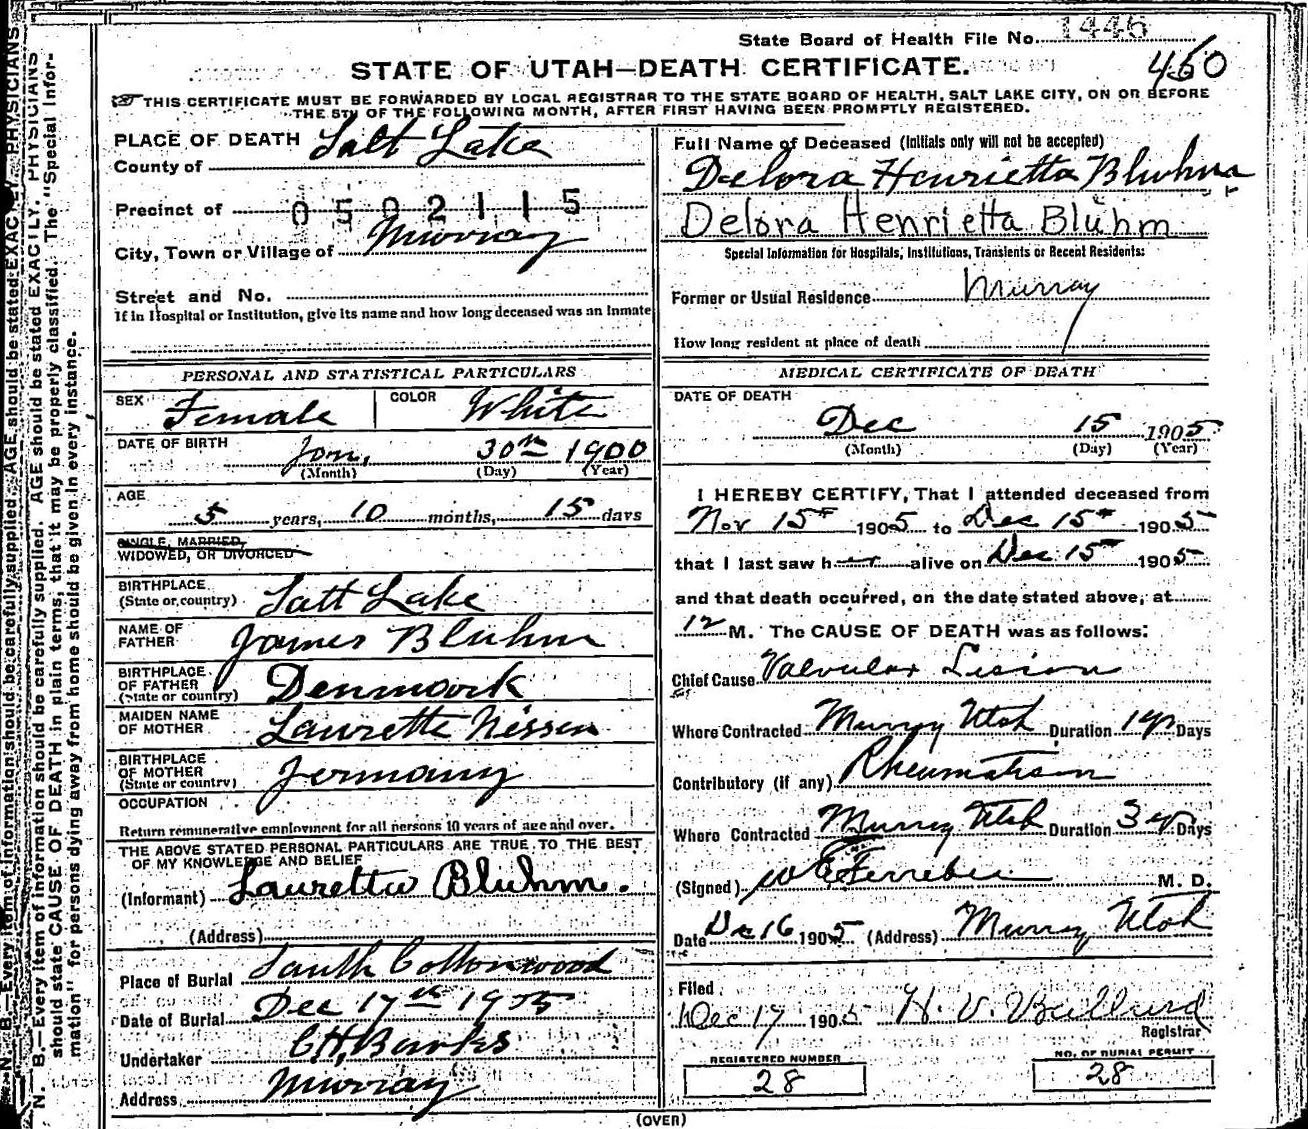 State Board of Health File No. 1446
460
STATE OF UTAH—DEATH CERTIFICATE.
THIS CERTIFICATE MUST BE FORWARDED BY LOCAL REGISTRAR TO THE STATE BOARD OF HEALTH, SALT LAKE CITY, ON OR BEFORE
THE 5TH OF THE FOLLOWING MONTH, AFTER FIRST HAVING BEEN PROMPTLY REGISTERED.
PLACE OF DEATH
County of Salt Lake
Precinct of 0502115
City, Town or Village of Murray
Street and No.
If in Hospital or Institution, give its name and how long deceased was an inmate
Full Name of Deceased (Initials only will not be accepted)
Delora Henrietta Bluhm
Delora Henrietta Blühm
Special Information for Hospitals, Institutions, Transients or Recent Residents:
Former or Usual Residence Murray
How long resident at place of death
PERSONAL AND STATISTICAL PARTICULARS
SEX Female COLOR White
DATE OF BIRTH Jan, 30th 1900
(Month) (Day) (Year)
AGE
5 years, 10 months, 15 days
SINGLE, MARRIED,
WIDOWED, OR DIVORCED
BIRTHPLACE
(State or country) Salt Lake
NAME OF
FATHER James Bluhm
BIRTHPLACE
OF FATHER
(State or country) Denmark
MAIDEN NAME
OF MOTHER Laurette Nissen
BIRTHPLACE
OF MOTHER
(State or country) Jermany
OCCUPATION
Return remunerative employment for all persons 10 years of age and over.
THE ABOVE STATED PERSONAL PARTICULARS ARE TRUE TO THE BEST
OF MY KNOWLEDGE AND BELIEF
(Informant) Lauretta Bluhm.
(Address)
Place of Burial South Cottonwood
Date of Burial Dec 17th 1905
Undertaker
Address Murray
MEDICAL CERTIFICATE OF DEATH
DATE OF DEATH
Dec 15 1905
(Month) (Day) (Year)
I HEREBY CERTIFY, That I attended deceased from
Nov 15th 1905 to Dec 15th 1905
that I last saw her alive on Dec 15th 1905
and that death occurred, on the date stated above, at
12 M. The CAUSE OF DEATH was as follows:
Chief Cause Valvular Lision
Where Contracted Murray Utah Duration 1 yr Days
Contributory (if any) Rheumatism
Where Contracted Murray Utah Duration 3 yr Days
(Signed) M. D.
Date Dec 16 1905 (Address) Murray Utah
Filed
Dec 17 1905 H. V. Bullard
Registrar
REGISTERED NUMBER
28
NO. OF BURIAL PERMIT
28
(OVER)
N. B.—Every item of information should be carefully supplied. AGE should be stated EXACTLY. PHYSICIANS
should state CAUSE OF DEATH in plain terms, that it may be properly classified. The "Special Infor-
mation" for persons dying away from home should be given in every instance.